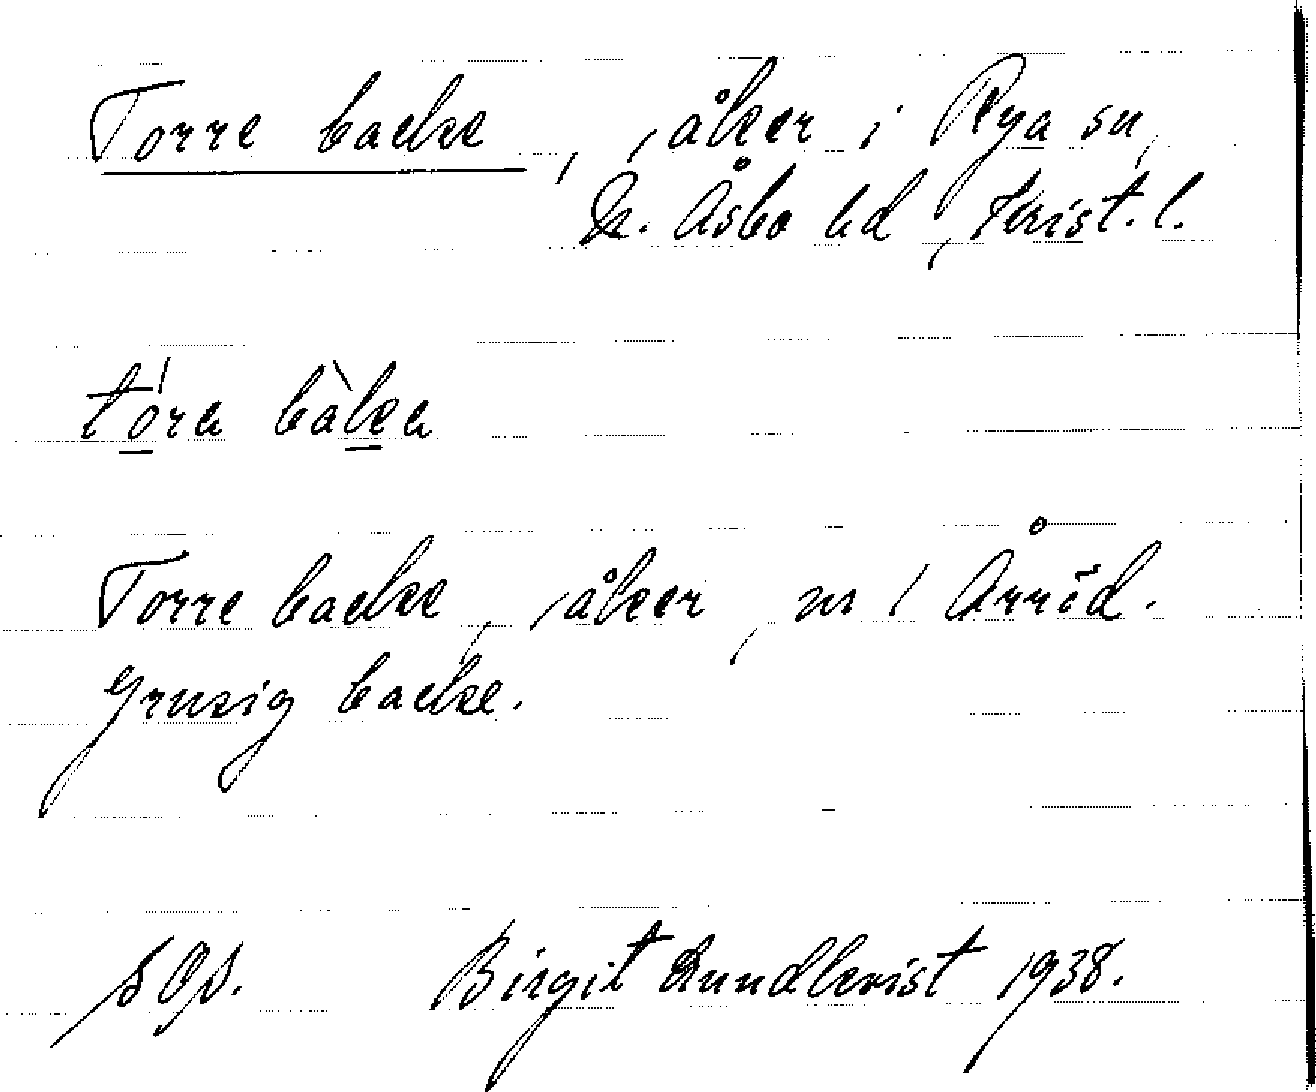 Torre backe, åker i Rya sn,
N. Åsbo hd, Krist. l.
tora baka
Torre backe, åker, nr 1 Arröd.
Grusig backe.
Birgit Lundkvist 1938.